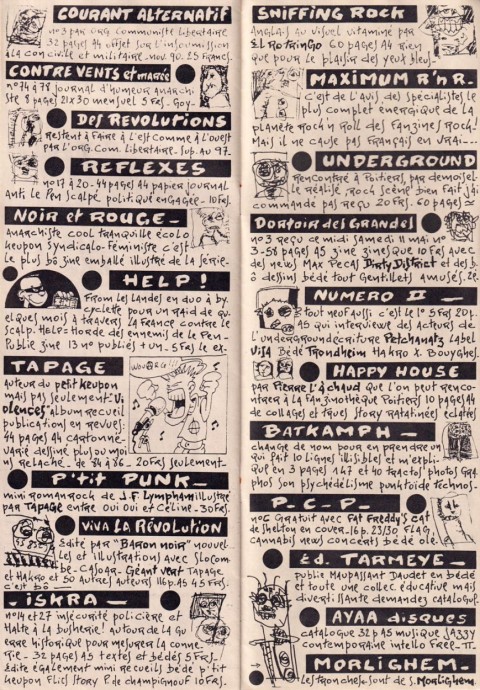 COURANT ALTERNATIF
n°3 par org communiste libertaire
32 pages A4 offset sur l'insoumission
à la civile et militaire. nov. 90. 25 francs.
CONTRE VENTS et marée
n°74 à 78 journal d'humeur anarchiste
8 pages 21x30 mensuel 5 frs. Goy-
Des Revolutions
restent à faire à l'est comme à l'ouest
par l'org. com. libertaire. sup. au 97-
REFLEXES
no 17 à 20-44 pages A4 papier journal
anti le pen scalpé politiqué engagée-10frs.
NOIR et ROUGE-
anarchiste cool tranquille écolo
keupon syndicalo-féministe c'est
le plus bô zine emballé illustré de la série.
HELP!
from les landes en duo à by
cyclette pour un raid de qu
elques mois à travers la France contre le
scalp. HELP=Horde des ennemis de le Pen-
Public zine 13 no publiés + un-5frs le ex.
WOUARG!!!
TAPAGE
auteur du petit keupon
mais pas seulement "Vi
olences" album recueil
publications en revues.
44 pages A4 cartonné-
varié dessiné plus ou moi
ns relaché- de 84 à 86- 20frs seulement-
P'tit PUNK-
mini romanrock de J.F. Lympham illustré
par TAPAGE entre oui oui et Céline-30frs.
VIVA LA Révolution
édité par "BARON noir" nouvel
les et illustrations avec Slocom
be-Casoar-Géant vert-Tapage
et Hakro et 50 autres auteurs 116p. A5 45frs.
c'est bô
-ISKRA-
no 14 et 27 insécurité policière et
Halte à la busherie! autour de la gu
erre historique pour mesurer la conne
rie-. 32 pages A5 textes et bédés 5frs.
édite également mini recueil bédé p'tit
keupon flics story P. de champignouf 10frs.
SNIFFING ROCK
anglais au visuel vitaminé par
EL ROTRINGO 60 pages A4 rien
que pour le plaisir des yeux bleus
MAXIMUM R'n R.
c'est de l'avis des spécialistes le
plus complet energique de la
planète rock'n roll des fanzines rock!
Mais il ne cause pas français en vrai---
UNDERGROUND
rencontré à Poitiers, par demoisel-
le réalisé, rock scène bien fait j'ai
commandé pas reçu 20frs. 60 pages
Dortoir des Grandes
no 3 reçu ce midi samedi 11 mai no
3-58 pages A5 zine zinesque 10frs avec
des news Max Pecas Dirty District et des b
ô dessins bédé tout gentillets amusés.20.
NUMERO II -
tout neuf aussi c'est le 1° 5frs 20p.
A5 qui interviewe des acteurs de
l'undergroundecriture Petchanatz label
Visa Bédé Trondheim Hakro X. Bouyghes.
HAPPY HOUSE
par Pierre l'à chaud que l'on peut rencon-
trer à la fanzinothèque Poitiers 10 pages A4
de collages et trucs story ratatinées éclatés
BATKAMPH-
change de nom pour en prendre un
qui fait 10 lignes illisibles et m'expli-
que en 3 pages 147 et 40 tracts photos gra
phos son psychédélisme punkoïde technos-
P-C-P-
no6 gratuit avec Fat Freddy's cat
de shelton en couver. 16 p. 23/30 FLAG,
cannabis news concerts bédé ole.
éd. TARMEYE-
publie Maupassant Daudet en bédé
et toute une collec. éducative mais
divertissante demandez catalogue
AYAA disques
catalogue 32p A5 musique JAZZY
contemporaine intello free-π-
MORLIGHEM-
Les tronches sont de S. Morlighem.